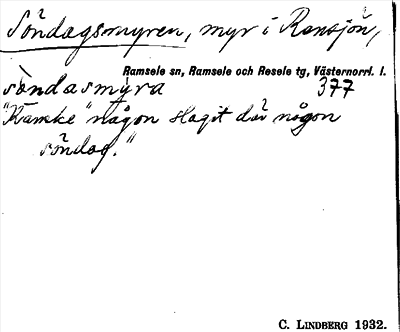 Söndagsmyren, myr i Rensjön,
Ramsele sn, Ramsele och Resele tg, Västernorrl. l.
sòndasmýra 377
"Kanske någon slagit där någon
söndag."
C. LINDBERG 1932.